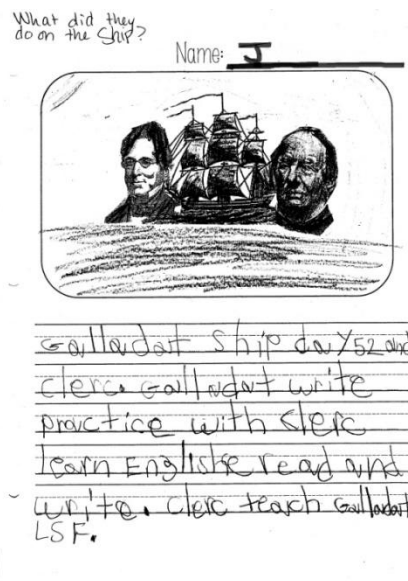 What did they
do on the ship?
Name: J
Galladat Ship day 52 and
clerc. Galladat write
practice with Clerc
learn Englishe read and
write. clerc teach Galladat
LSF.